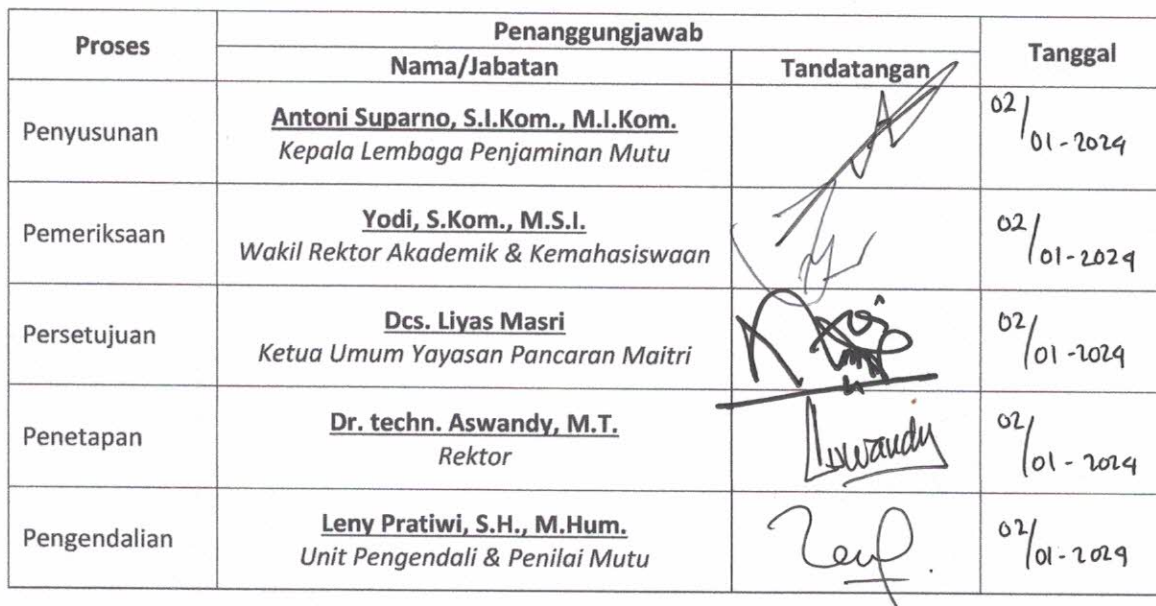 Proses
Penanggungjawab
Tanggal
Nama/Jabatan
Tandatangan
Penyusunan
Antoni Suparno, S.I.Kom., M.I.Kom.
Kepala Lembaga Penjaminan Mutu
02/
01-2024
Pemeriksaan
Yodi, S.Kom., M.S.I.
Wakil Rektor Akademik & Kemahasiswaan
02/
01-2024
Persetujuan
Dcs. Liyas Masri
Ketua Umum Yayasan Pancaran Maitri
02/
01-2024
Penetapan
Dr. techn. Aswandy, M.T.
Rektor
Aswandy
02/
01-2024
Pengendalian
Leny Pratiwi, S.H., M.Hum.
Unit Pengendali & Penilai Mutu
02/
01-2024